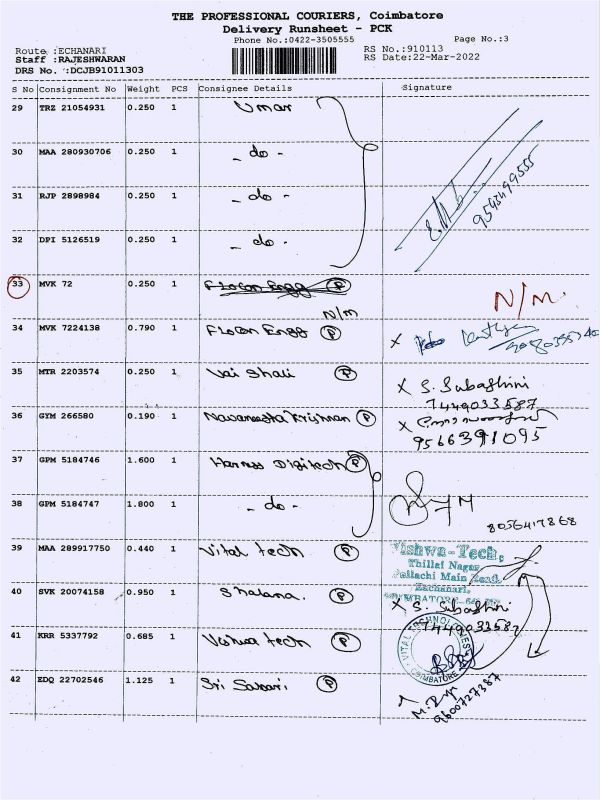 THE PROFESSIONAL COURIERS, Coimbatore
Delivery Runsheet - PCK
Phone No.:0422-3505555
Page No.:3
Route :ECHANARI
RS No.:910113
Staff :RAJESHWARAN
RS Date:22-Mar-2022
DRS No. :DCJB91011303
S No Consignment No Weight PCS Consignee Details Signature
29 TRZ 21054931 0.250 1 Umar
30 MAA 280930706 0.250 1 - do -
31 RJP 2898984 0.250 1 - do -
32 DPI 5126519 0.250 1 - do -
9543499555
33 MVK 72 0.250 1 Flocon Engg P
N/M
N/M.
34 MVK 7224138 0.790 1 Flocon Engg P X
35 MTR 2203574 0.250 1 Vaishali P X S. Subashini
7449033587
36 GYM 266580 0.190 1 Navaneetha Krishnan P X
9566391095
37 GPM 5184746 1.600 1 Digitech P
38 GPM 5184747 1.800 1 - do -
8056417868
39 MAA 289917750 0.440 1 Vital tech P
Vishwa-Tech,
Thillai Nagar
Pollachi Main Road,
Eachanari,
COIMBATORE
40 SVK 20074158 0.950 1 P X S. Subashini
7449033587
41 KRR 5337792 0.685 1 Vishwa tech P
VITAL TECHNOLOGIES
COIMBATORE
42 EDQ 22702546 1.125 1 Sri P
9600727387